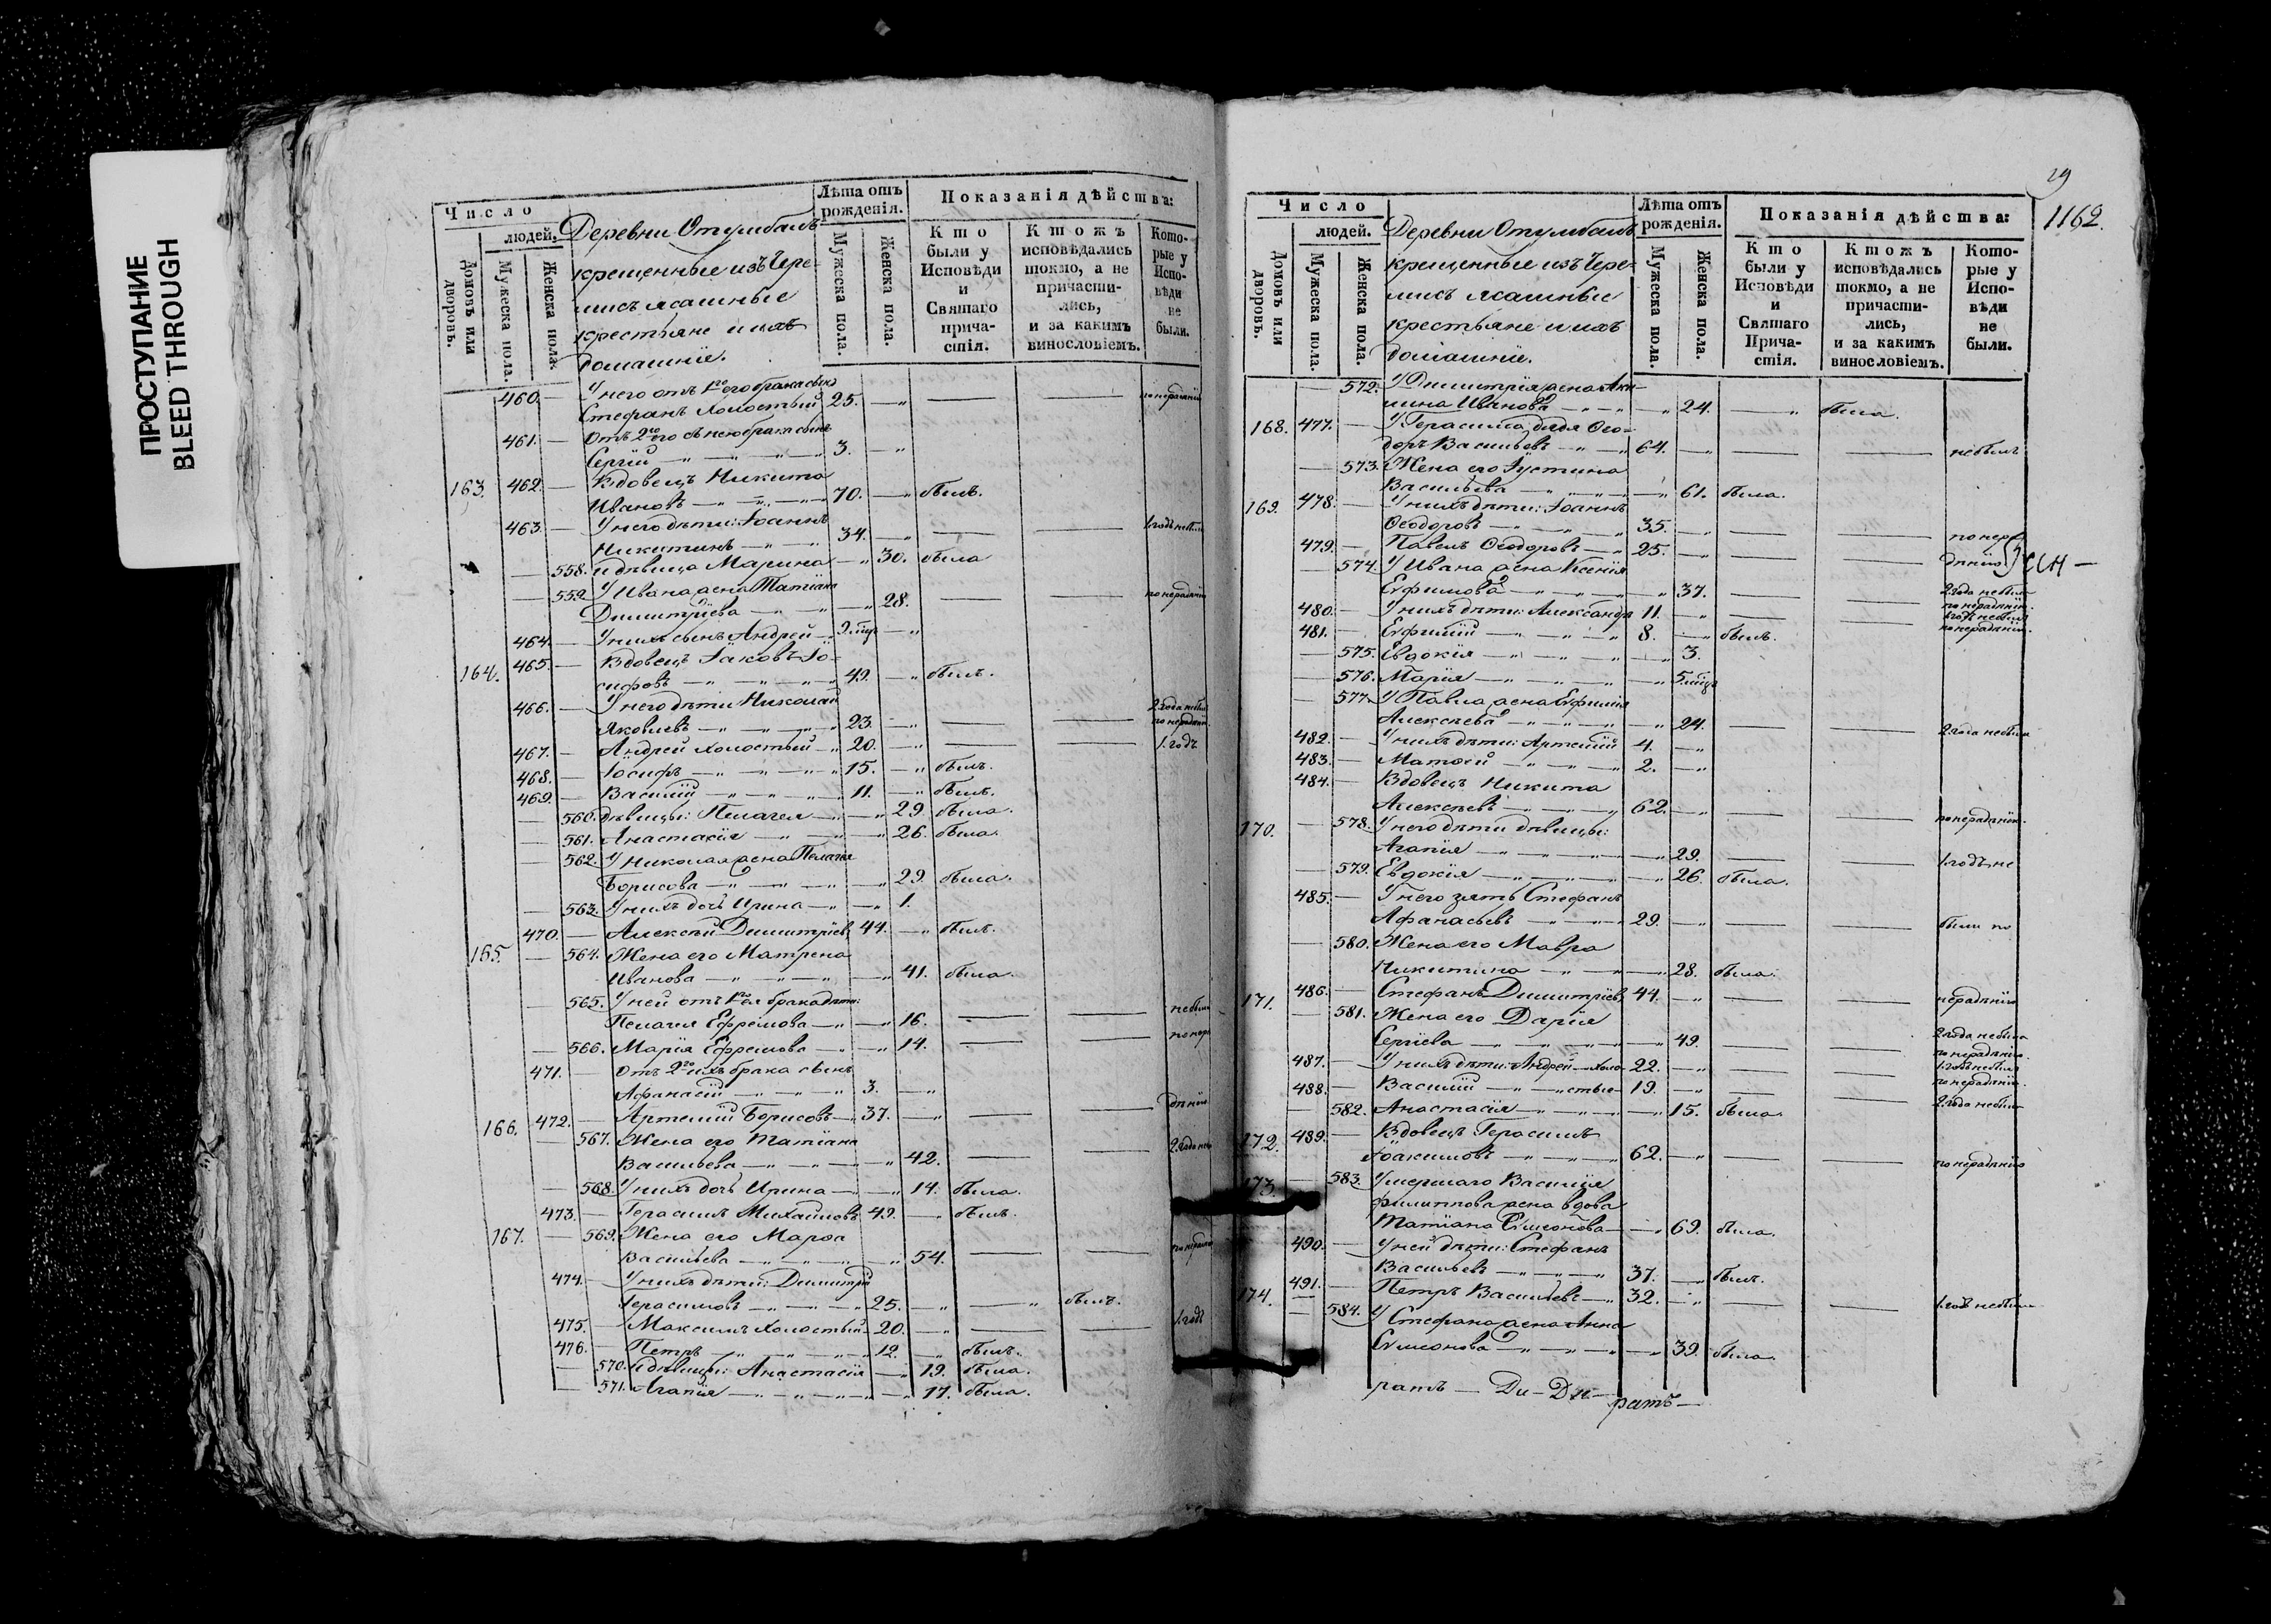 ПРОСТУПАНИЕ
BLEED THROUGH
Число
людей.
Домовъ или дворовъ.
Мужеска пола.
Женска пола.
Деревни
крещенные изъ Чере-
мисъ ясашные
крестьяне и ихъ
домашніе.
Лѣта отъ рожденія.
Мужеска пола.
Женска пола.
Показанія дѣйства:
Кто были у Исповѣди и Святаго причастія.
Ктожъ исповѣдались токмо, а не причастились, и за какимъ винословіемъ.
Которые у Исповѣди не были.
460. — У него отъ 1го его брака сынъ
Стефанъ холостый 25. по нерадѣнію
461. — Отъ 2го его съ нею брака сынъ
Сергій 3.
163. 462. — Вдовецъ Никита
Ивановъ 70. былъ.
463. — У него дѣти: Іоаннъ
Никитинъ 34. 1. годъ не былъ
— 558. и дѣвица Марина 30. была
— 559. У Ивана жена Татіана
Димитріева 28. по нерадѣнію
464. — У нихъ сынъ Андрей
164. 465. — Вдовецъ Іаковъ Іо-
сифовъ 49. былъ.
466. — У него дѣти Николай
Яковлевъ 23. 2. года не былъ
по нерадѣн.
467. — Андрей холостый 20. 1. годъ
468. — Іосифъ 15. былъ.
469. — Василій 11. былъ.
— 560. дѣвицы: Пелагея 29. была.
— 561. Анастасія 26. была.
— 562. У Николая жена Пелагея
Борисова 29. была.
— 563. У нихъ дочь Ирина 1.
165. 470. — Алексѣй Димитріевъ 44. былъ.
— 564. Жена его Матрена
Иванова 41. была.
— 565. У ней отъ 1го ея брака дѣти:
Пелагея Ефремова 16. не были
— 566. Марія Ефремова 14. по нера
471. Отъ 2го ихъ брака сынъ
Афанасій 3.
166. 472. — Артемій Борисовъ 37. дѣнію
— 567. Жена его Татіана
Васильева 42. 2. года не
— 568. У нихъ дочь Ирина 14. была.
167. 473. — Герасимъ Михайловъ 49. былъ.
— 569. Жена его Марѳа
Васильева 54. по нерадѣн
474. — У нихъ дѣти: Димитрій
Герасимовъ 25. былъ.
475. — Максимъ холостый 20. 1. годъ
476. — Петръ 12. былъ.
— 570. и дѣвицы: Анастасія 19. была.
— 571. Агапія 17. была.
29
1162.
Число
людей.
Домовъ или дворовъ.
Мужеска пола.
Женска пола.
Деревни
крещенные изъ Чере-
мисъ ясашные
крестьяне и ихъ
домашніе.
Лѣта отъ рожденія.
Мужеска пола.
Женска пола.
Показанія дѣйства:
Кто были у Исповѣди и Святаго Причастія.
Ктожъ исповѣдались токмо, а не причастились, и за какимъ винословіемъ.
Которые у Исповѣди не были.
— 572. У Димитрія жена Аки-
лина Иванова 24. была.
168. 477. — У Герасима дядя Ѳео-
доръ Васильевъ 64. не былъ
— 573. Жена его Іустина
Васильева 61. была.
169. 478. — У нихъ дѣти: Іоаннъ
Ѳеодоровъ 35. по нера
479. — Павелъ Ѳеодоровъ 25. дѣнію
— 574. У Ивана жена Ксенія
Ефимова 37. 2. года не была
по нерадѣнію.
480. — У нихъ дѣти: Александръ 11. 1. годъ не былъ
по нерадѣнію.
481. — Ефимій 8. былъ.
— 575. Евдокія 3.
— 576. Марія 5.
— 577. У Павла жена Ефимія
Алексѣева 24. 2. года не была
482. — У нихъ дѣти: Артемій 4.
483. — Матѳей 2.
484. — Вдовецъ Никита
Алексѣевъ 62. по нерадѣнію.
170. — 578. У него дѣти дѣвицы:
Агапія 29. 1. годъ не
— 579. Евдокія 26. была.
485. — У него зять Стефанъ
Афанасьевъ 29. были по
— 580. Жена его Мавра
Никитина 28. была.
171. 486. — Стефанъ Димитріевъ 44. нерадѣнію
— 581. Жена его Дарія
Сергіева 49. 2. года не была
по нерадѣнію.
487. — У нихъ дѣти: Андрей холо- 22. 1. годъ не былъ
по нерадѣнію.
488. — Василій стые 19. 2. года не былъ
— 582. Анастасія 15. была.
172. 489. — Вдовецъ Герасимъ
Іоакимовъ 62. по нерадѣнію
173. — 583. Умершаго Василія
Филиппова жена вдова
Татіана Симеонова 69. была.
490. — У ней дѣти: Стефанъ
Васильевъ 37. былъ.
174. 491. — Петръ Васильевъ 32. 1. годъ не былъ
— 584. У Стефана жена Анна
Симеонова 39. была.